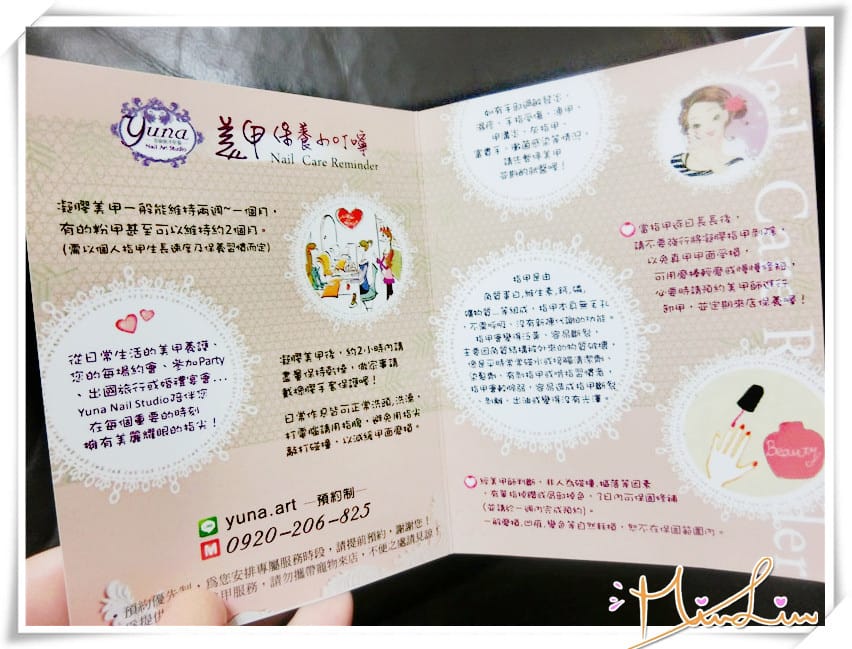 yuna
Nail Art Studio
美甲保養小叮嚀
Nail Care Reminder
凝膠美甲一般能維持兩週~一個月,
有的粉甲甚至可以維持約2個月。
(需以個人指甲生長速度及保養習慣而定)
從日常生活的美甲養護、
您的每場約會、參加Party
、出國旅行或婚禮宴會...
Yuna Nail Studio陪伴您
在每個重要的時刻
擁有美麗耀眼的指尖!
凝膠美甲後,約2小時內請
盡量保持乾燥,做家事請
戴橡膠手套保護喔!
日常作息皆可正常洗頭、洗澡,
打電腦請用指腹,避免用指尖
敲打碰撞,以減緩甲面磨損。
yuna.art —預約制—
0920-206-825
・預約優先制,為您安排專屬服務時段,請提前預約,謝謝您!
甲服務,請勿攜帶寵物來店,不便之處請見諒!
如有手部過敏發炎、
濕疹、手指受傷、凍甲、
甲溝炎、灰指甲、
富貴手、黴菌感染等情況,
請先暫停美甲
並期約就醫喔!
當指甲逐日長長後,
請不要強行將凝膠指甲剝除,
以免真甲甲面受損,
可用磨棒輕磨或慢慢修短,
必要時請預約美甲師進行
卸甲,並定期來店保養喔!
指甲是由
角質蛋白,維生素,鈣,磷,
礦物質...等組成,指甲本身無毛孔
,不需呼吸、沒有新陳代謝的功能。
指甲會變得泛黃、容易斷裂,
主要因角質結構被外來的物質破壞,
像是平時常常碰水或接觸清潔劑、
染髮劑、有剝指甲或啃指習慣角,
指甲會較脆弱,容易造成指甲斷裂
、剝離、出油或變得沒有光澤。
經美甲師判斷,非人為碰撞,摳落等因素
,有單指掉鑽或局部掉色,7日內可保固修補
(並請於一週內完成預約)。
一般磨損,凹痕,變色等自然耗損,恕不在保固範圍內。
Beauty
Nail Care Reminder
MinLin